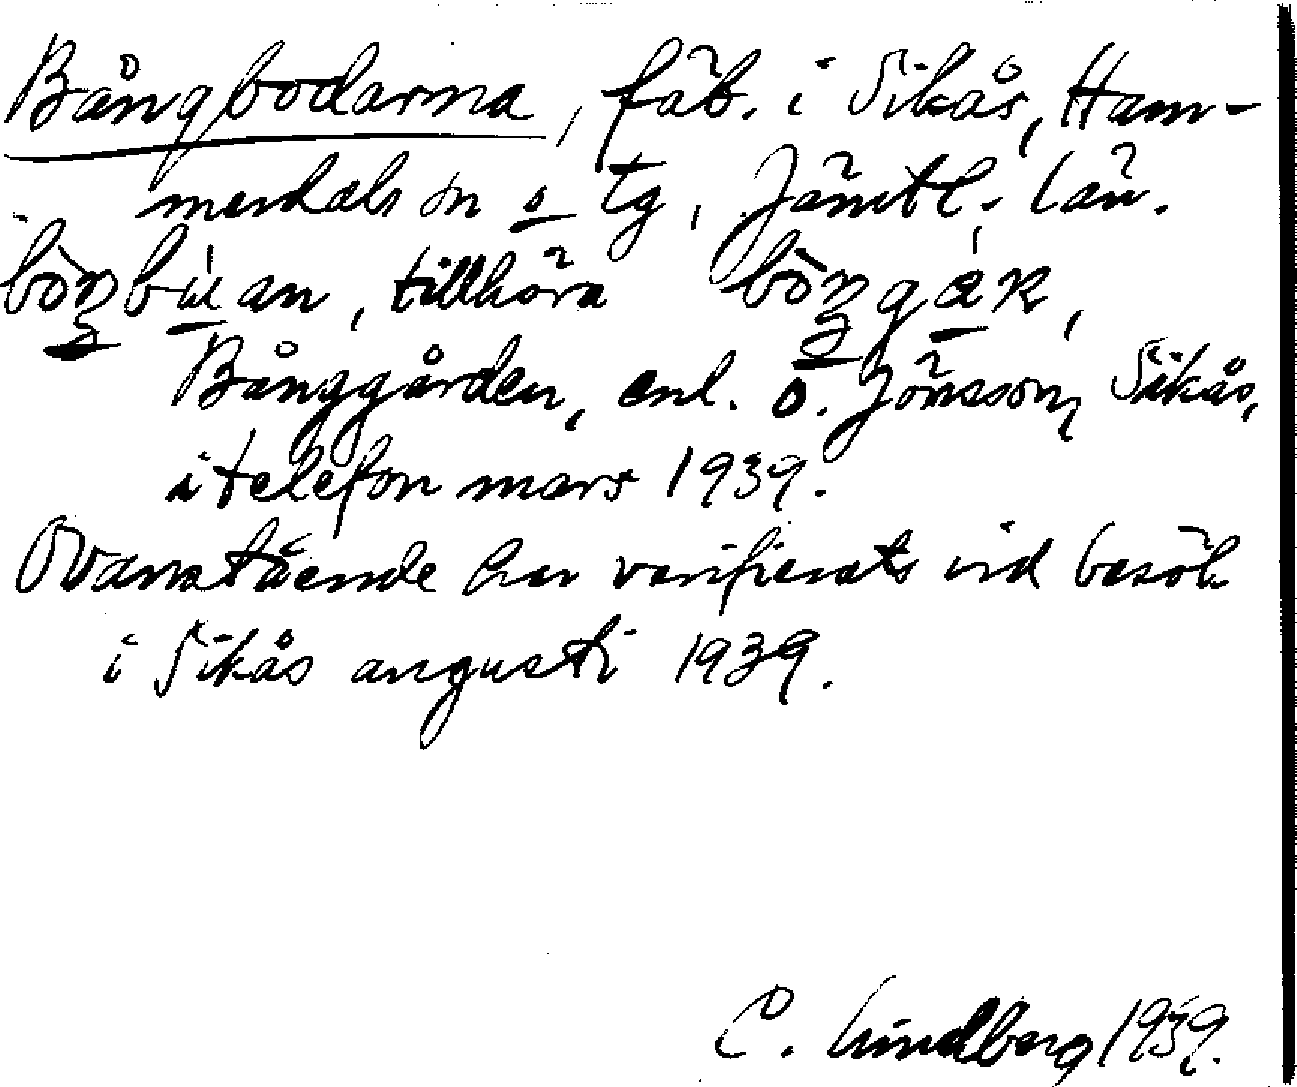 Bångbodarna, fäb. i Sikås, Ham-
merdals sn o tg, Jämtl. län.
tillhöra
Bånggården, enl. O. Jönsson, Sikås,
i telefon mars 1939.
Ovanstående har verifierats vid besök
i Sikås augusti 1939.
C. Lindberg 1939.